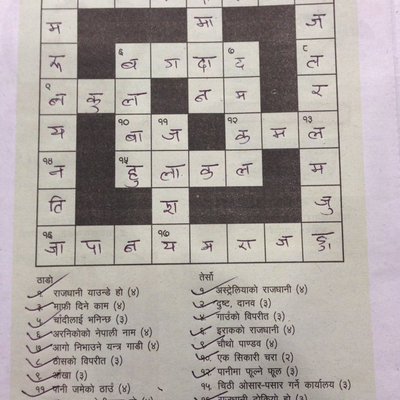 म मा ज
ब ग दा द
न कु ल न म र
य १० बा ११ ज १२ क म १३ ल
१४ न १५ हु ला क ल म
ति जु
१६ जा पा न १७ य म रा ज
ठाडो
राजधानी याउन्डे हो (४)
माफी दिने काम (४)
चाँदीलाई भनिन्छ (३)
अरनिकोको नेपाली नाम (४)
आगो निभाउने यन्त्र गाडी (४)
ठोसको विपरीत (३)
आँखा (३)
पानी जमेको ठाउँ (४)
तेर्सो
अस्ट्रेलियाको राजधानी (४)
दुष्ट, दानव (३)
गाउँको विपरीत (३)
इराकको राजधानी (४)
चौथो पाण्डव (३)
१०. एक सिकारी चरा (२)
१२. पानीमा फूल्ने फूल (३)
१५. चिठी ओसार-पसार गर्ने कार्यालय (३)
राजधानी टोकियो हो (३)